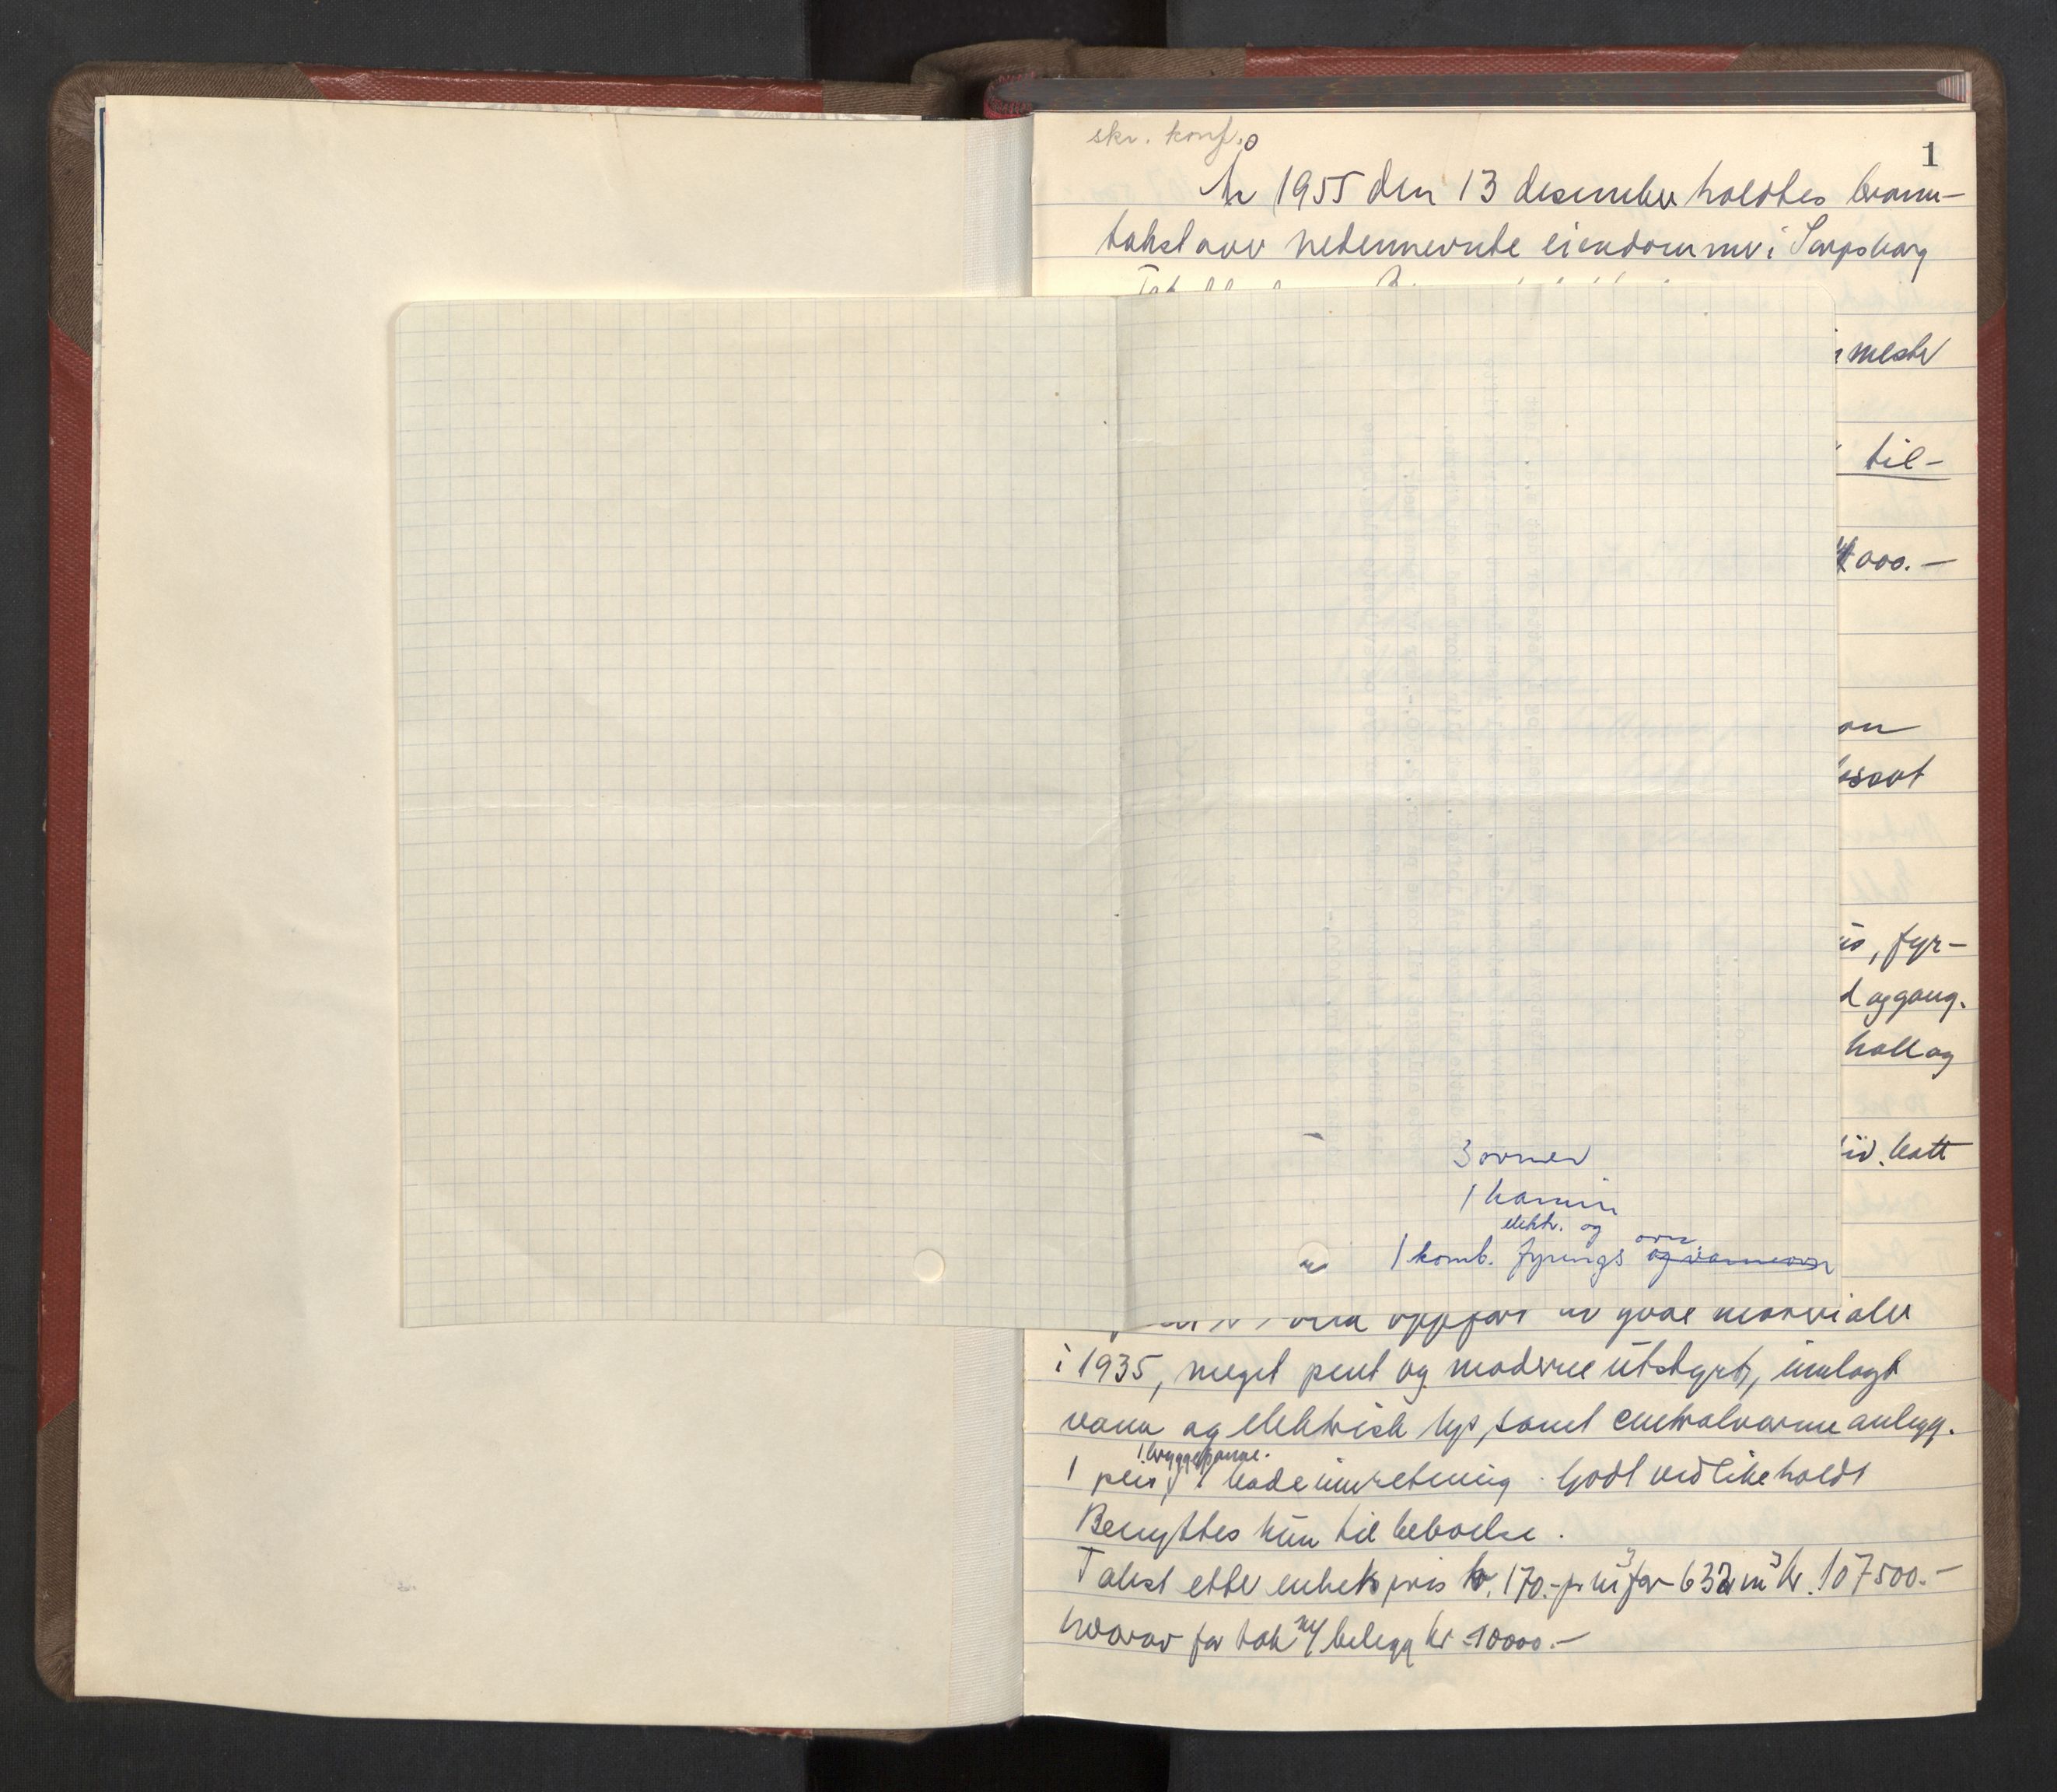 skr. konf.
1
År 1955 den 13 desember holdtes brann-
takst over nedennevnte eiendommer i Sarpsborg
mester
til-
000.-
fyr-
og gang.
hall og
3 ovner
1 kamin
elektr. og
ovn
1 komb. fyrings og varmeovn
oppført av gode materialer
i 1935, meget pent og moderne utstyrt, innlagt
vann og elektrisk lys, samt centralvarmeanlegg.
1 bryggepanne.
1 peis, 1 badeinnretning. Godt vedlikeholdt
Benyttes kun til beboelse.
Takst etter enhetspris kr. 170.- pr m³ for 632 m³ kr. 107500.-
hvorav for tak m/ belegg kr 10000.-